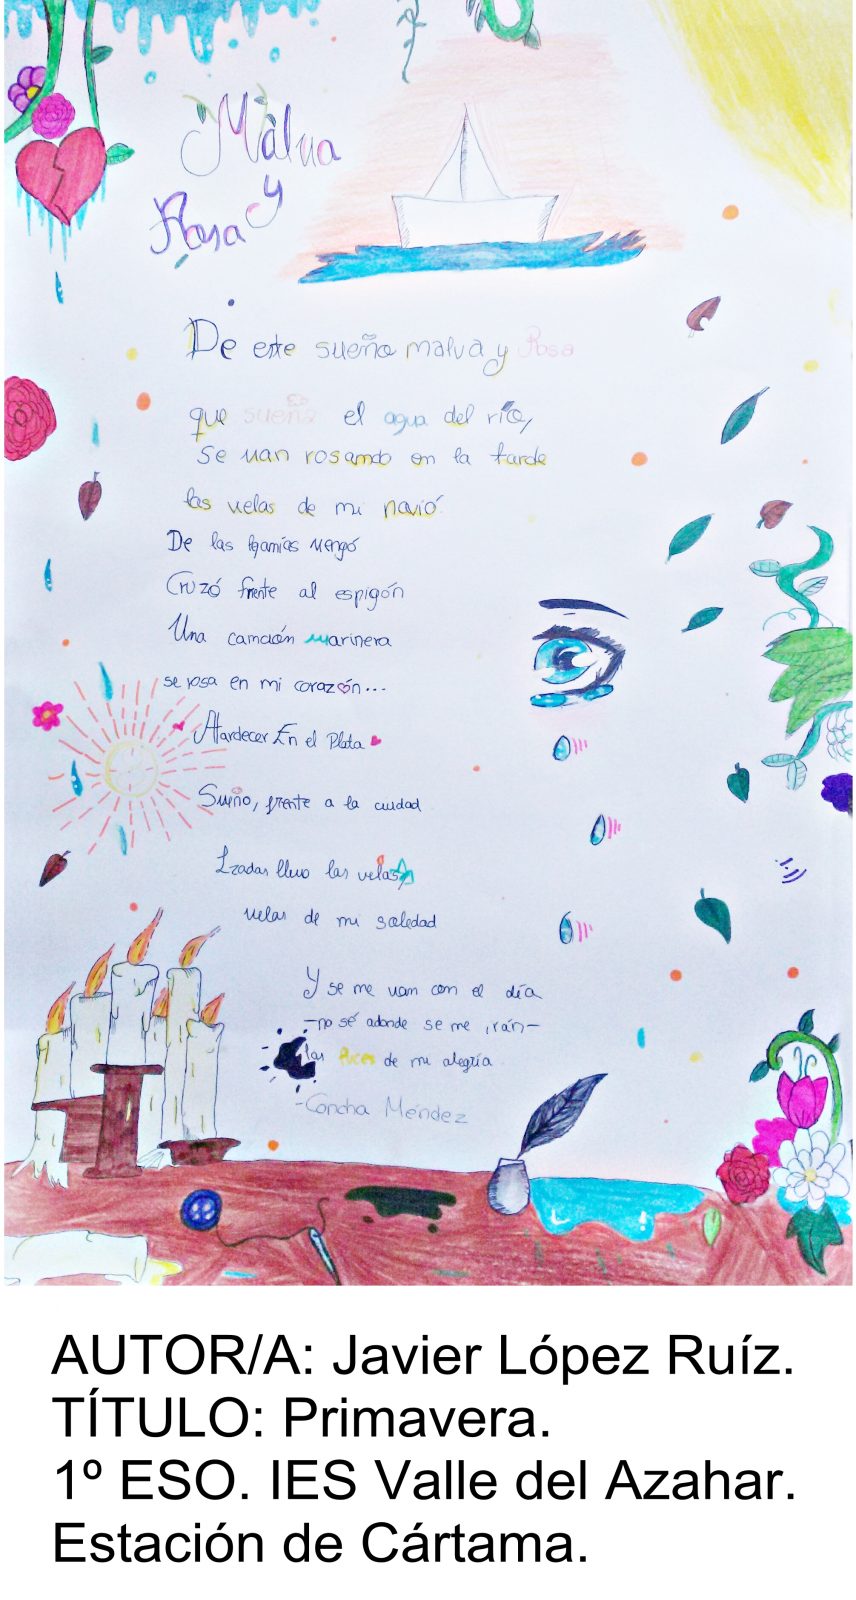 Malva
y
Rosa
De este sueño malva y Rosa
que sueña el agua del río,
se van rosando en la tarde
las velas de mi navió.
De las vengó
Cruzó frente al espigón
Una canción marinera
se posa en mi corazón...
Atardecer En el Plata
Sueño, frente a la ciudad
Izadas llevo las velas,
velas de mi soledad
Y se me van con el día
—no sé adonde se me irán—
las de mi alegría
-Concha Méndez
AUTOR/A: Javier López Ruíz.
TÍTULO: Primavera.
1º ESO. IES Valle del Azahar.
Estación de Cártama.